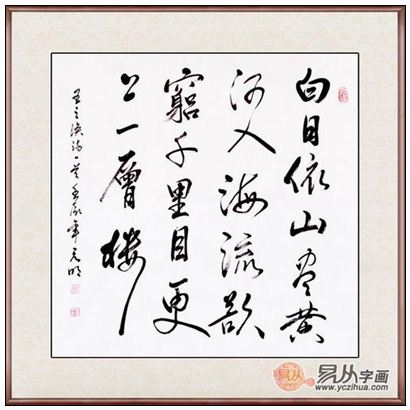 白日依山尽黄
河入海流欲
窮千里目更
上一層楼
王之渙诗一首
易从
易从字画
www.yczihua.com